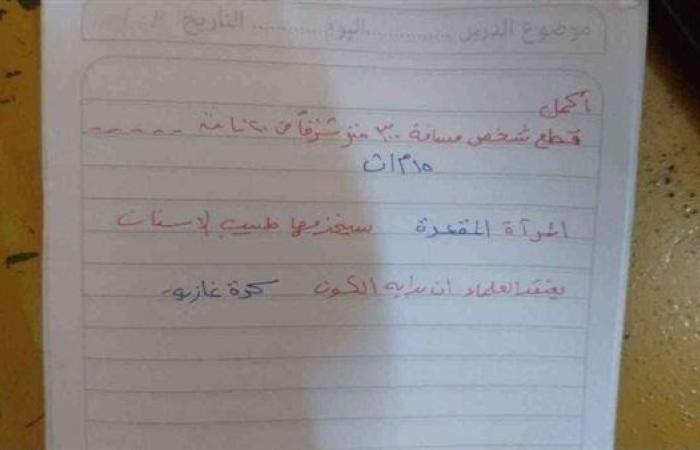 موضوع الدرس .............. اليوم .......... التاريخ
أكمل
قطع شخص مسافة ٣٠٠ متر شرقاً في ٢٠ ثانية ------
١٥ م/ث
المرآة المقعرة يستخدمها طبيب لاسنان
يعتقد العلماء ان بدايه الكون كرة غازيه